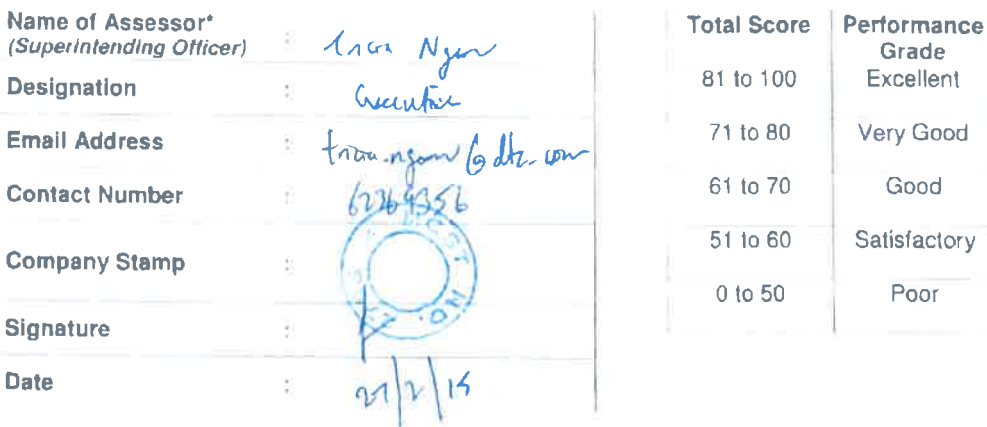 Name of Assessor* : Tricia Ngan
(Superintending Officer)
Designation : Executive
Email Address :
Contact Number : 62369356
Company Stamp :
Signature :
Date : 27/2/15
Total Score Performance Grade
81 to 100 Excellent
71 to 80 Very Good
61 to 70 Good
51 to 60 Satisfactory
0 to 50 Poor